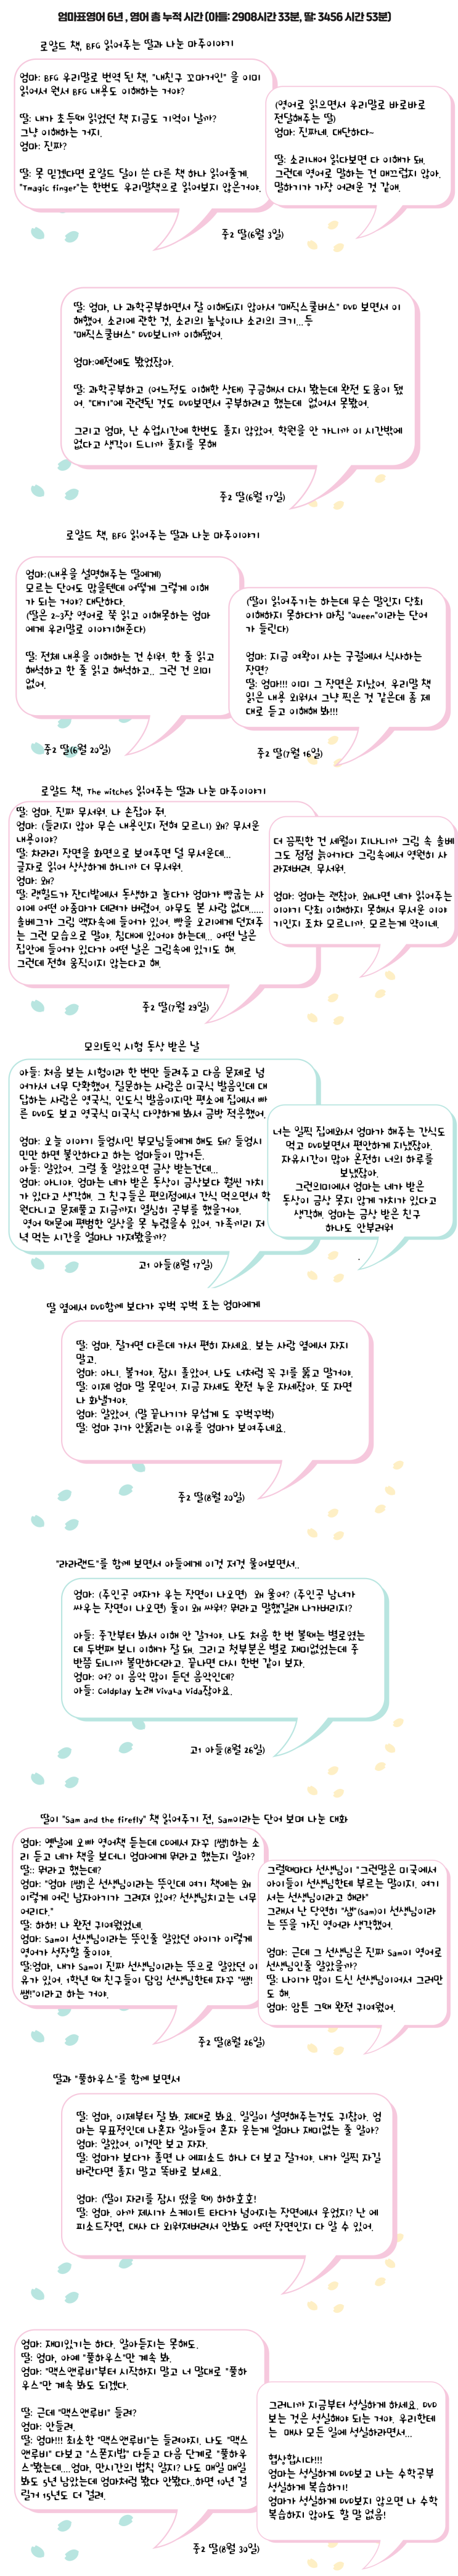 엄마표영어 6년 , 영어 총 누적 시간 (아들: 2908시간 33분, 딸: 3456 시간 53분)
로알드 책, BFG 읽어주는 딸과 나눈 마주이야기
엄마: BFG 우리말로 번역 된 책, "내친구 꼬마거인" 을 이미
읽어서 원서 BFG 내용도 이해하는 거야?
딸: 내가 초등때 읽었던 책 지금도 기억이 날까?
그냥 이해하는 거지.
엄마: 진짜?
딸: 못 믿겠다면 로알드 달이 쓴 다른 책 하나 읽어줄게.
"Tmagic finger"는 한번도 우리말책으로 읽어보지 않은거야.
(영어로 읽으면서 우리말로 바로바로
전달해주는 딸)
엄마: 진짜네. 대단하다~
딸: 소리내어 읽다보면 다 이해가 돼.
그런데 영어로 말하는 건 매끄럽지 않아.
말하기가 가장 어려운 것 같애.
중2 딸(6월 3일)
딸: 엄마, 나 과학공부하면서 잘 이해되지 않아서 "매직스쿨버스" DVD 보면서 이
해했어. 소리에 관한 것, 소리의 높낮이나 소리의 크기...등
"매직스쿨버스" DVD보니까 이해됐어.
엄마:예전에도 봤었잖아.
딸: 과학공부하고 (어느정도 이해한 상태) 궁금해서 다시 봤는데 완전 도움이 됐
어. "대기"에 관련된 것도 DVD보면서 공부하려고 했는데 없어서 못봤어.
그리고 엄마, 난 수업시간에 한번도 졸지 않았어. 학원을 안 가니까 이 시간밖에
없다고 생각이 드니까 졸지를 못해
중2 딸(6월 17일)
로알드 책, BFG 읽어주는 딸과 나눈 마주이야기
엄마:(내용을 설명해주는 딸에게)
모르는 단어도 많을텐데 어떻게 그렇게 이해
가 되는 거야? 대단하다.
(딸은 2~3장 영어로 쭉 읽고 이해못하는 엄마
에게 우리말로 이야기해준다)
딸: 전체 내용을 이해하는 건 쉬워. 한 줄 읽고
해석하고 한 줄 읽고 해석하고.. 그런 건 의미
없어.
(딸이 읽어주기는 하는데 무슨 말인지 당최
이해하지 못하다가 마침 "queen"이라는 단어
가 들린다)
엄마: 지금 여왕이 사는 궁궐에서 식사하는
장면?
딸: 엄마!!! 이미 그 장면은 지났어. 우리말 책
읽은 내용 외워서 그냥 찍은 것 같은데 좀 제
대로 듣고 이해해 봐!!!
중2 딸(6월 20일)
중2 딸(7월 16일)
로알드 책, The witches 읽어주는 딸과 나눈 마주이야기
딸: 엄마. 진짜 무서워. 나 손잡아 줘.
엄마: (들리지 않아 무슨 내용인지 전혀 모르니) 왜? 무서운
내용이야?
딸: 차라리 장면을 화면으로 보여주면 덜 무서운데...
글자로 읽어 상상하게 하니까 더 무서워.
엄마: 왜?
딸: 랭힐드가 잔디밭에서 동생하고 놀다가 엄마가 빵굽는 사
이에 어떤 아줌마가 데려가 버렸어. 아무도 본 사람 없대......
솔베그가 그림 액자속에 들어가 있어. 빵을 오리에게 던져주
는 그런 모습으로 말야. 침대에 있어야 하는데... 어떤 날은
집안에 들어가 있다가 어떤 날은 그림속에 있기도 해.
그런데 전혀 움직이지 않는다고 해.
더 끔찍한 건 세월이 지나니까 그림 속 솔베
그도 점점 늙어가다 그림속에서 영원히 사
라져버려. 무서워.
엄마: 엄마는 괜찮아. 왜냐면 네가 읽어주는
이야기 당최 이해하지 못해서 무서운 이야
기인지 조차 모르니까. 모르는게 약이네.
중2 딸(7월 29일)
모의토익 시험 동상 받은 날
아들: 처음 보는 시험이라 한 번만 들려주고 다음 문제로 넘
어가서 너무 당황했어. 질문하는 사람은 미국식 발음인데 대
답하는 사람은 영국식, 인도식 발음이지만 평소에 집에서 빠
른 DVD도 보고 영국식 미국식 다양하게 봐서 금방 적응했어.
엄마: 오늘 이야기 들엄시민 부모님들에게 해도 돼? 들엄시
민만 하면 불안하다고 하는 엄마들이 많거든.
아들: 알았어. 그럴 줄 알았으면 금상 받는건데...
엄마: 아니야. 엄마는 네가 받은 동상이 금상보다 훨씬 가치
가 있다고 생각해. 그 친구들은 편의점에서 간식 먹으면서 학
원다니고 문제풀고 지금까지 열심히 공부를 했을거야.
영어 때문에 평범한 일상을 못 누렸을수 있어. 가족끼리 저
녁 먹는 시간을 얼마나 가져봤을까?
너는 일찍 집에와서 엄마가 해주는 간식도
먹고 DVD보면서 편안하게 지냈잖아.
자유시간이 많아 온전히 너의 하루를
보냈잖아.
그런의미에서 엄마는 네가 받은
동상이 금상 못지 않게 가치가 있다고
생각해. 엄마는 금상 받은 친구
하나도 안부러워
고1 아들(8월 17일)
딸 옆에서 DVD함께 보다가 꾸벅 꾸벅 조는 엄마에게
딸: 엄마. 잘거면 다른데 가서 편히 자세요. 보는 사람 옆에서 자지
말고.
엄마: 아니. 볼거야. 잠시 졸았어. 나도 너처럼 꼭 귀를 뚫고 말거야.
딸: 이제 엄마 말 못믿어. 지금 자세도 완전 누운 자세잖아. 또 자면
나 화낼거야.
엄마: 알았어. (말 끝나기가 무섭게 도 꾸벅꾸벅)
딸: 엄마 귀가 안뚫리는 이유를 엄마가 보여주네요.
중2 딸(8월 20일)
"라라랜드"를 함께 보면서 아들에게 이것 저것 물어보면서..
엄마: (주인공 여자가 우는 장면이 나오면) 왜 울어? (주인공 남녀가
싸우는 장면이 나오면) 둘이 왜 싸워? 뭐라고 말했길래 나가버리지?
아들: 중간부터 봐서 이해 안 갈거야. 나도 처음 한 번 볼때는 별로였는
데 두번째 보니 이해가 잘 돼. 그리고 첫부분은 별로 재미없었는데 중
반쯤 되니까 볼만하더라고. 끝나면 다시 한번 같이 보자.
엄마: 어? 이 음악 많이 듣던 음악인데?
아들: Coldplay 노래 VivaLa Vida잖아요.
고1 아들(8월 26일)
딸이 "Sam and the firefly" 책 읽어주기 전, Sam이라는 단어 보며 나눈 대화
엄마: 옛날에 오빠 영어책 듣는데 CD에서 자꾸 [쌤]하는 소
리 듣고 네가 책을 보더니 엄마에게 뭐라고 했는지 알아?
딸:: 뭐라고 했는데?
엄마: "엄마 [쌤]은 선생님이라는 뜻인데 여기 책에는 왜
이렇게 어린 남자아기가 그려져 있어? 선생님치고는 너무
어리다."
딸: 하하! 나 완전 귀여웠었네.
엄마: Sam이 선생님이라는 뜻인줄 알았던 아이가 이렇게
영어가 성장할 줄이야.
딸:엄마, 내가 Sam이 진짜 선생님이라는 뜻으로 알았던 이
유가 있어. 1학년 때 친구들이 담임 선생님한테 자꾸 "쌤!
쌤!"이라고 하는 거야.
그럴때마다 선생님이 "그런말은 미국에서
아이들이 선생님한테 부르는 말이지. 여기
서는 선생님이라고 해라"
그래서 난 당연히 "샘"(Sam)이 선생님이라
는 뜻을 가진 영어라 생각했어.
엄마: 근데 그 선생님은 진짜 Sam이 영어로
선생님인줄 알았을까?
딸: 나이가 많이 드신 선생님이어서 그러만
도 해.
엄마: 암튼 그때 완전 귀여웠어.
중2 딸(8월 26일)
딸과 "풀하우스"를 함께 보면서
딸: 엄마, 이제부터 잘 봐. 제대로 봐요. 일일이 설명해주는것도 귀찮아. 엄
마는 무표정인데 나혼자 알아들어 혼자 웃는게 얼마나 재미없는 줄 알아?
엄마: 알았어. 이것만 보고 자자.
딸: 엄마가 보다가 졸면 나 에피소드 하나 더 보고 잘거야. 내가 일찍 자길
바란다면 졸지 말고 똑바로 보세요.
엄마: (딸이 자리를 잠시 떴을 때) 하하호호!
딸: 엄마. 아까 제시가 스케이트 타다가 넘어지는 장면에서 웃었지? 난 에
피소드장면, 대사 다 외워져버려서 안봐도 어떤 장면인지 다 알 수 있어.
엄마: 재미있기는 하다. 알아듣지는 못해도.
딸: 엄마, 아예 "풀하우스"만 계속 봐.
엄마: "맥스앤루비"부터 시작하지 말고 너 말대로 "풀하
우스"만 계속 봐도 되겠다.
딸: 근데 "맥스앤루비" 들려?
엄마: 안들려.
딸: 엄마!!! 최소한 "맥스앤루비"는 들려야지. 나도 "맥스
앤루비" 다보고 "스폰지밥" 다듣고 다음 단계로 "풀하우
스"봤는데....엄마, 만시간의 법칙 알지? 나도 매일 매일
봐도 5년 남았는데 엄마처럼 봤다 안봤다..하면 10년 걸
릴거 15년도 더 걸려.
그러니까 지금부터 성실하게 하세요. DVD
보는 것은 성실해야 되는 거야. 우리한테
는 매사 모든 일에 성실하라면서...
협상합시다!!!
엄마는 성실하게 DVD보고 나는 수학공부
성실하게 복습하기!
엄마가 성실하게 DVD보지 않으면 나 수학
복습하지 않아도 할 말 없음!
중2 딸(8월 30일)